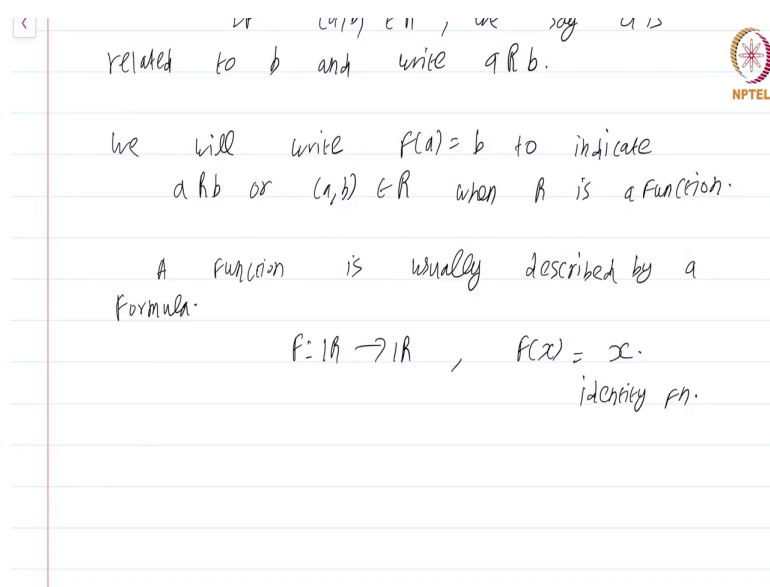 (a,b) ∈ R, we say a is
related to b and write aRb.
NPTEL
We will write F(a) = b to indicate
aRb or (a,b) ∈ R when R is a function.
A function is usually described by a
formula.
F: ℝ → ℝ, F(x) = x.
identity fn.